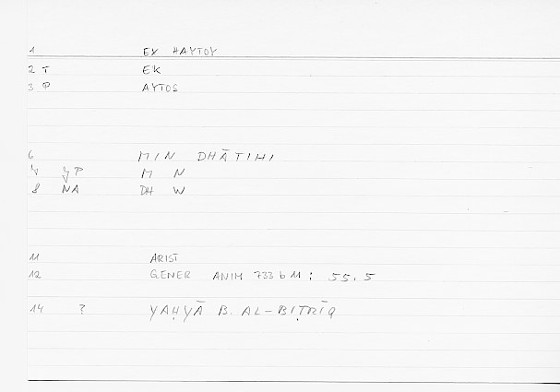 1 EX HAYTOY
2 T EK
3 P AYTOS
6 MIN DHĀTIHI
7 YP M N
8 NA DH W
11 ARIST
12 GENER ANIM 733 b 11 : 55.5
14 ? YAḤYĀ B. AL-BIṬRĪQ